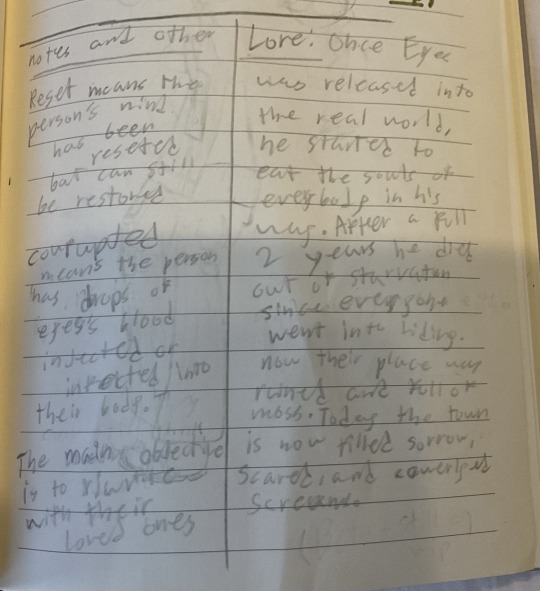 notes and other
Reset means the
person's mind
has been
reseted
but can still
be restored
courupted
means the person
has drops of
eyes's blood
injected or
infected into
their body.
The main objective
is to
with their
loved ones
Lore: Once Eyes
was released into
the real world,
he started to
eat the souls of
everybody in his
way. After a full
2 years he died
out of starvation
since everyone
went into hiding.
now their place was
ruined and full of
moss. Today the town
is now filled sorrow,
scared, and